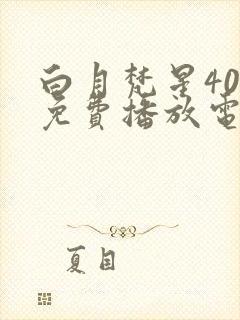 白月梵星40
免費播放電
夏目